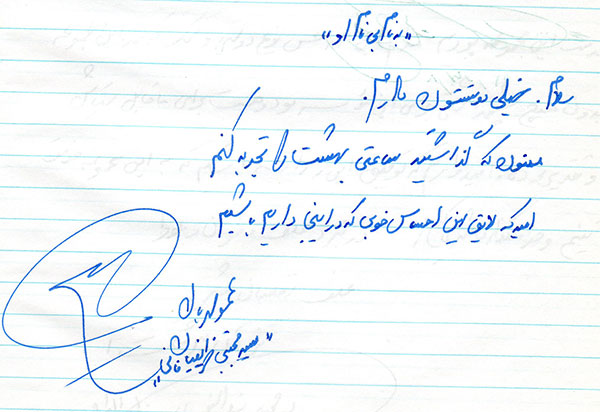 «به نام بی نام او»
سلام. خیلی دوستتون دارم.
ممنون که گذاشتید ساعتی بهشت را تجربه کنم
امید که لایق این احساس خوبی که در اینجا داریم باشیم
عمو مهربان
«سید مجتبی